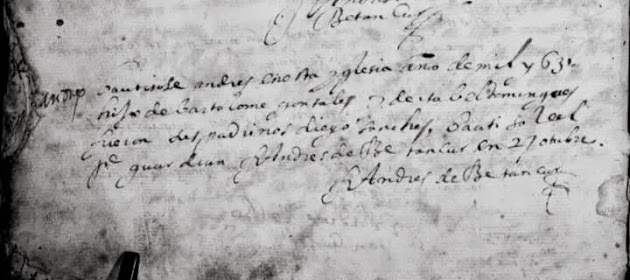 Betancur
bautisose andres eneste yglesia año de mil y 63
hijo de bartolome gonsales y de ysabel Domingues
fueron des padrinos diego sanches. bauti so Real
pe guardian Andres de Betancur en 27 otubre.
Andres de Betancur